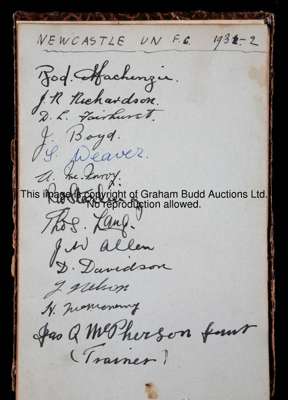 NEWCASTLE UN F.C. 1931-2
Rod. Mackenzie.
J. R. Richardson.
D. L. Fairhurst.
J. Boyd.
S. Weaver.
This image is copyright of Graham Budd Auctions Ltd.
No reproduction allowed.
Thos. Lang.
J. W Allen
D. Davidson
J Nelson
H. McMenemy
Jas Q McPherson
(Trainer)